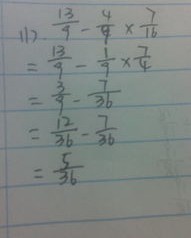 11). 13/9 - 4/9 × 7/16
= 13/9 - 1/9 × 7/4
= 3/9 - 7/36
= 12/36 - 7/36
= 5/36